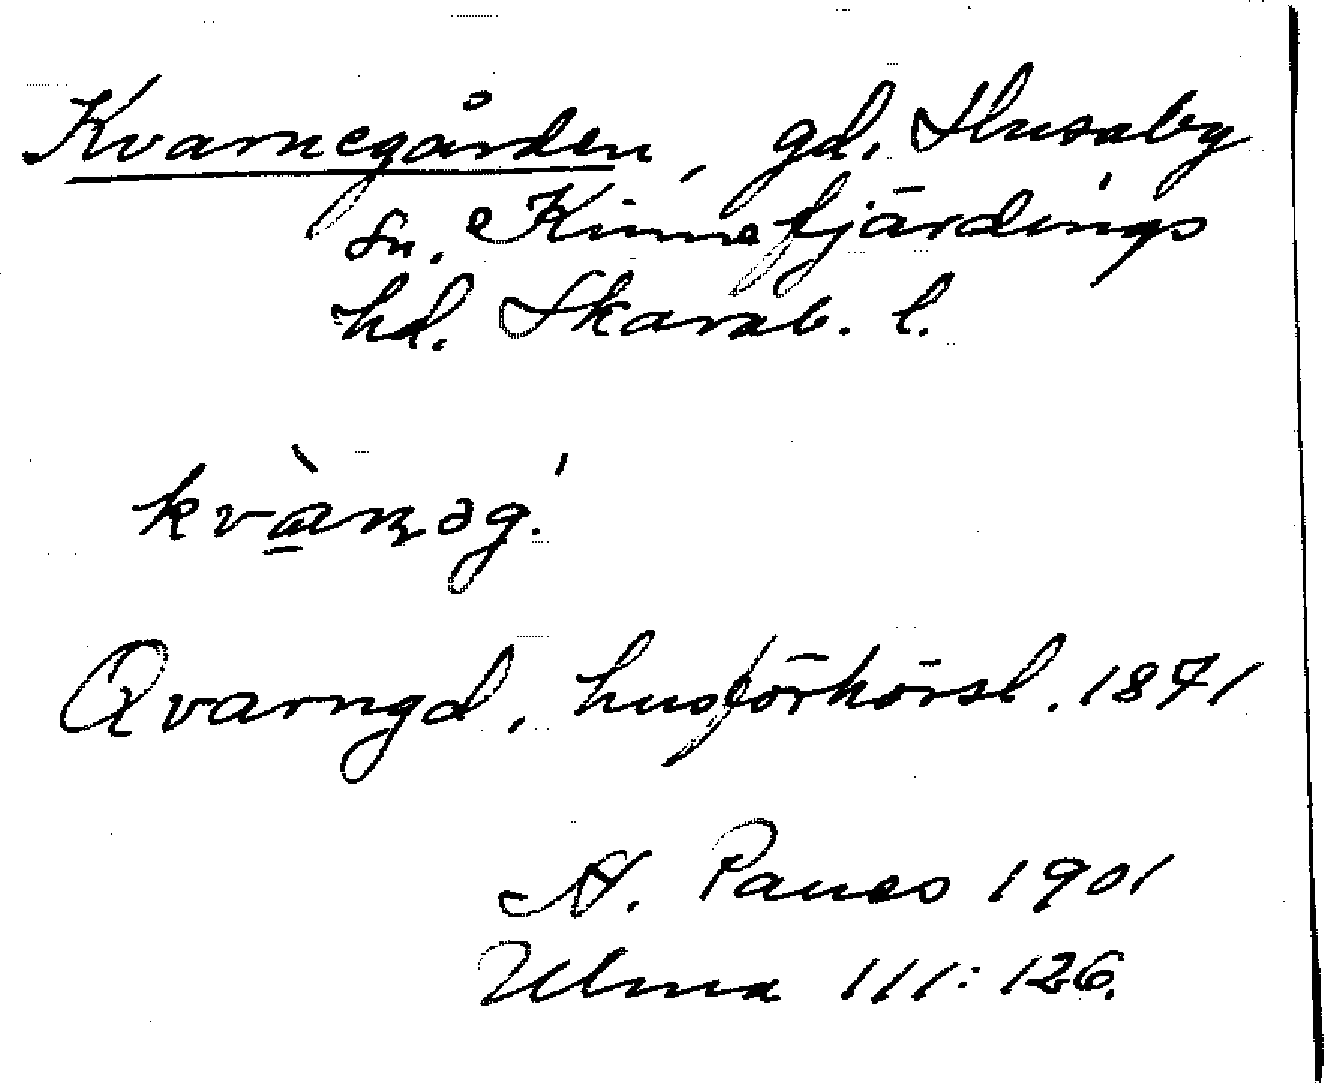 Kvarnegården, gd, Husaby
sn. Kinnefjärdings
hd. Skarab. l.
kvàrnəg.'
Qvarngd, husförhörsl. 1871
A. Paues 1901
Ulma 111:126.